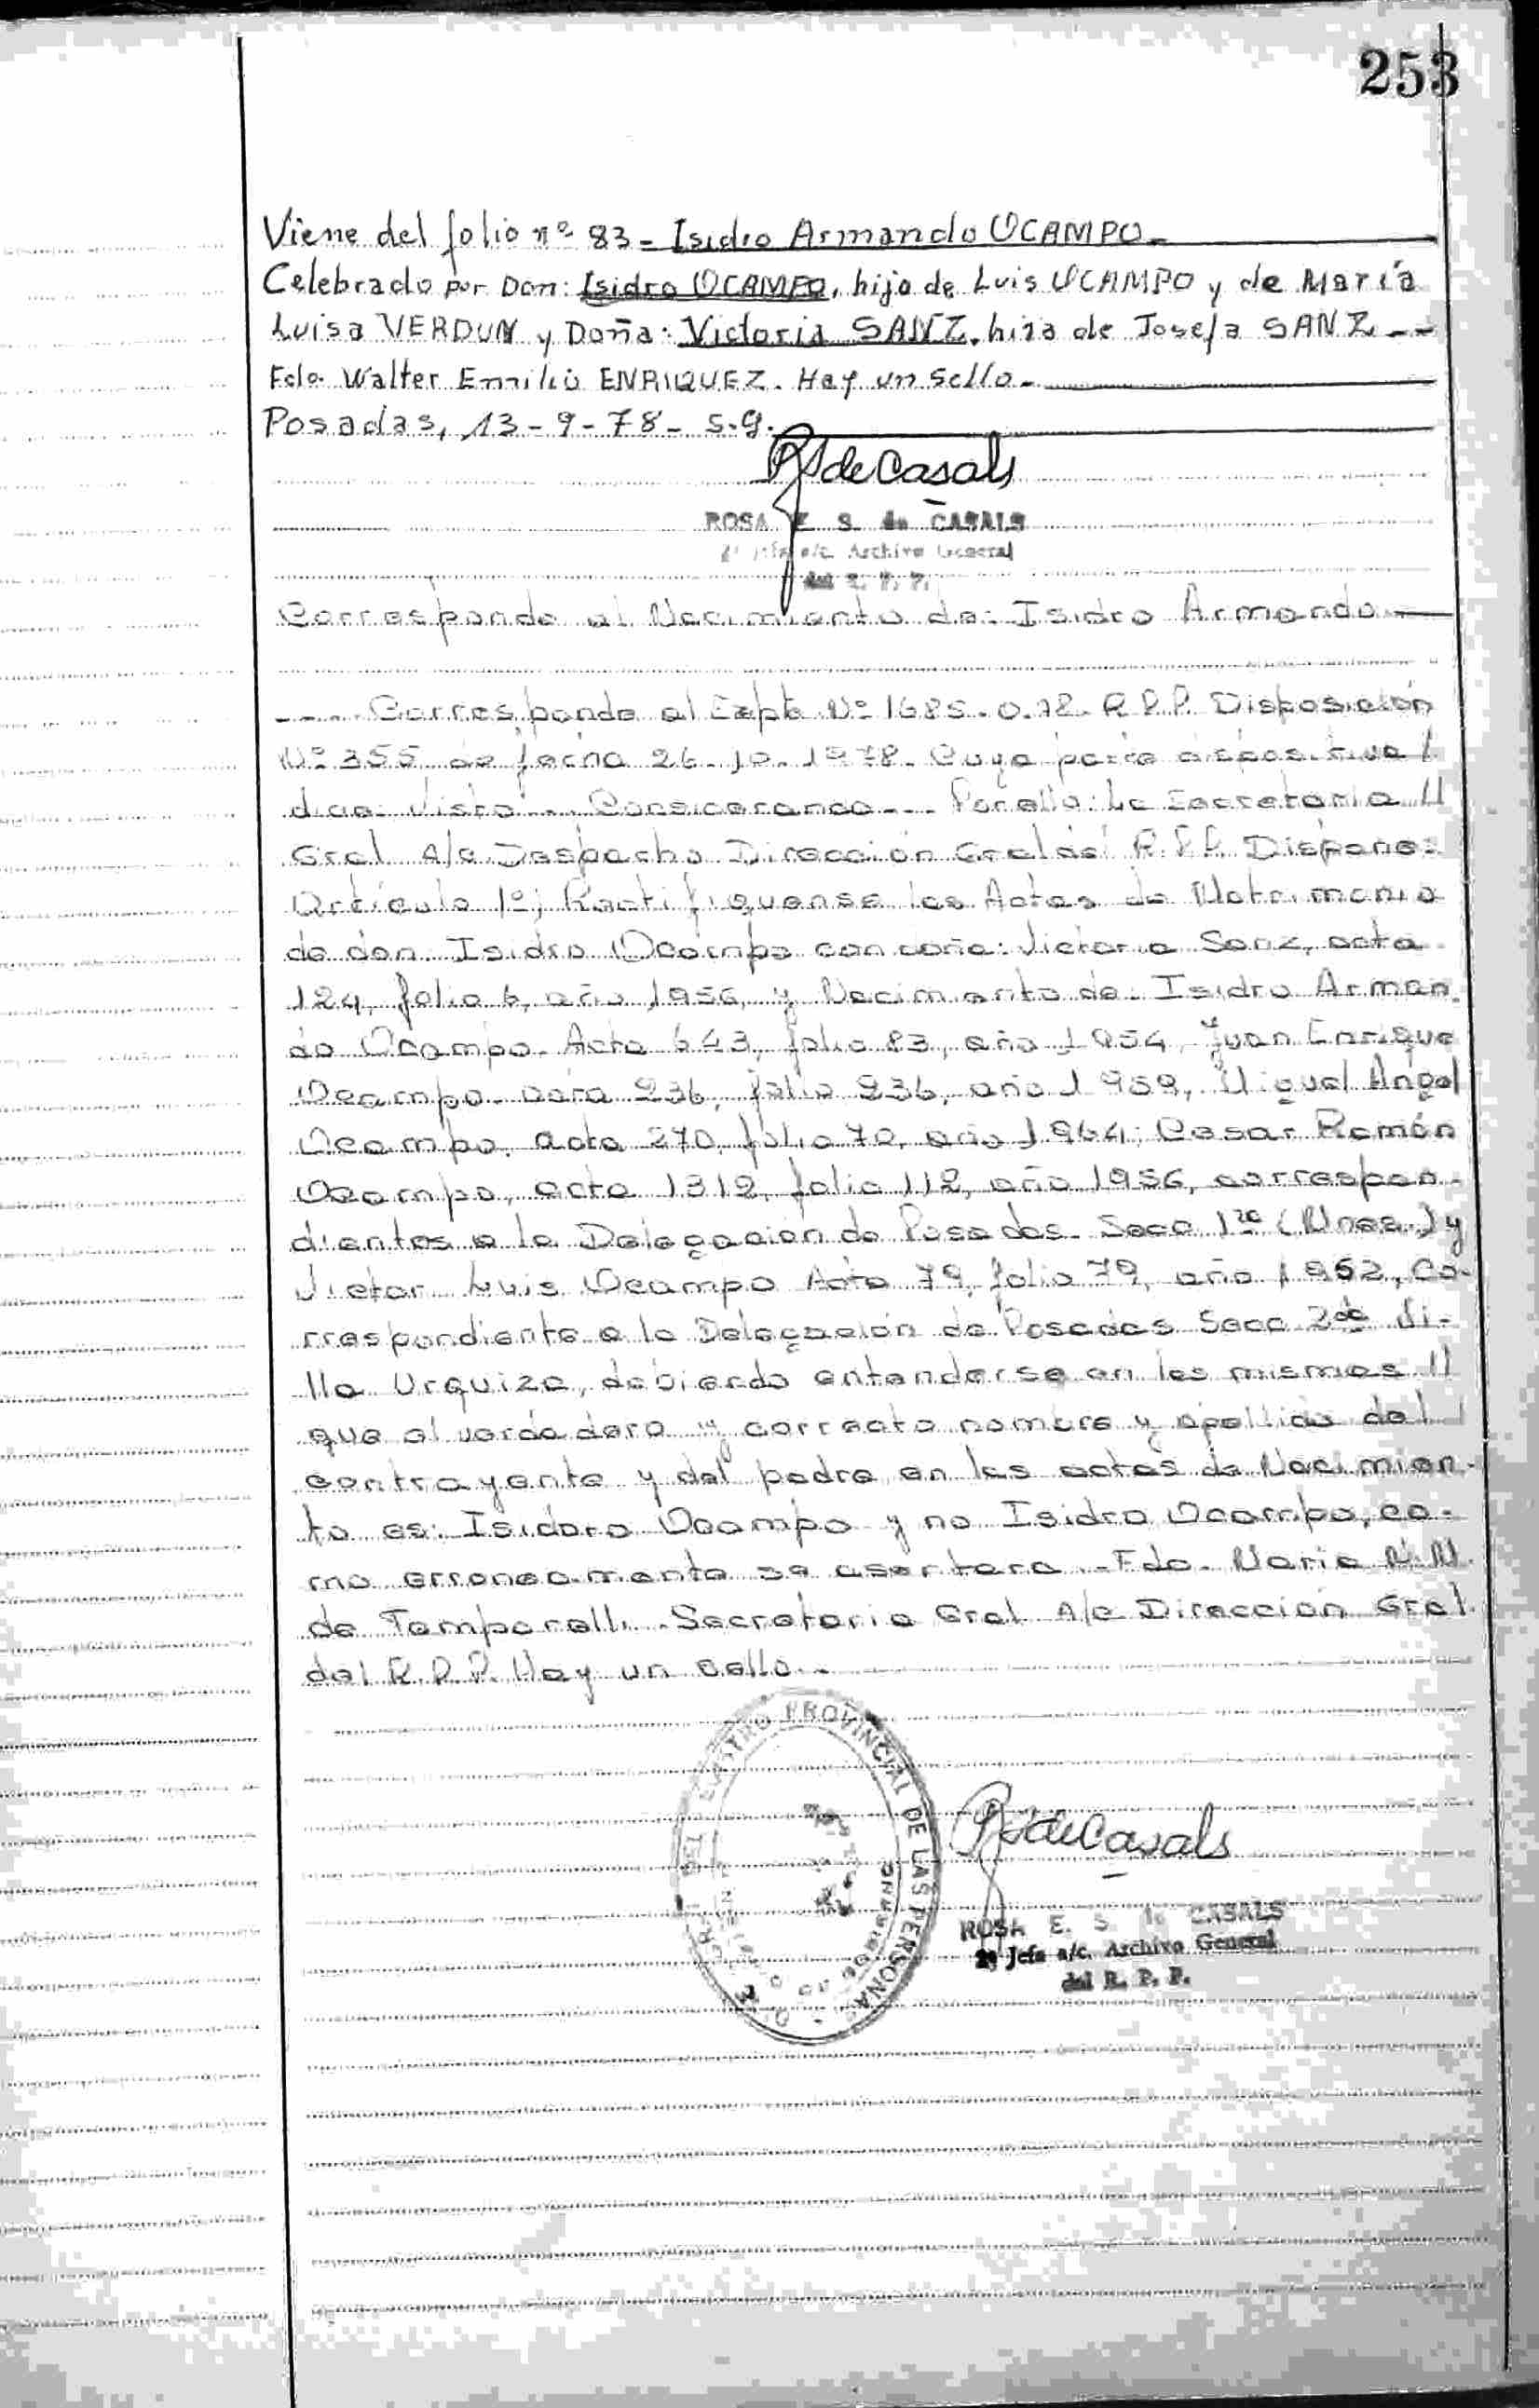 253
Viene del folio nº 83 - Isidro Armando OCAMPO.-
Celebrado por Don: Isidro OCAMPO, hijo de Luis OCAMPO y de María
Luisa VERDUN y Doña: Victoria SANZ, hija de Josefa SANZ --
Fdo. Walter Emilio ENRIQUEZ. Hay un sello.-
Posadas, 13-9-78- S.G.
RS de Casals
ROSA E. S. de CASALS
2ª Jefa a/c. Archivo General
del R. P. P.
Corresponde al Nacimiento de: Isidro Armando.-
---- Corresponde al Expte Nº 1685.0.78. R.P.P. Disposición
Nº 355 de fecha 26.10.1978. Cuya parte dispositiva /
dice: Visto... Considerando... Por ello: La Secretaria //
Gral A/c Despacho Dirección Gral del R.P.P. Dispone:
Artículo 1º; Rectifíquense las Actas de Matrimonio
de don: Isidro Ocampo con doña: Victoria Sanz, acta
124, folio 6, año 1956, y Nacimiento de: Isidro Arman-
do Ocampo. Acta 643, folio 83, año 1954, Juan Enrique
Ocampo. acta 236, folio 236, año 1959, Miguel Angel
Ocampo. acta 270, folio 70, año 1964; Cesar Ramón
Ocampo, acta 1312, folio 112, año 1956, correspon-
dientes a la Delegación de Posadas. Secc 1ra (Mnes.) y
Victor Luis Ocampo Acta 79, folio 79, año 1962, Co-
rrespondiente a la Delegación de Posadas Secc 2da Vi-
lla Urquiza, debiendo entenderse en las mismas //
que el verdadero y correcto nombre y apellido del
contrayente y del padre en las actas de Nacimien-
to es: Isidoro Ocampo y no Isidro Ocampo, co-
mo erroneamente se asentara. Fdo. Maria N.N.
de Tamporelli. Secretaria Gral A/c Dirección Gral.
del R.P.P. Hay un sello.-
PROVINCIAL DE LAS PERSONAS
RS de Casals
ROSA E. S. de CASALS
2ª Jefa a/c. Archivo General
del R. P. P.